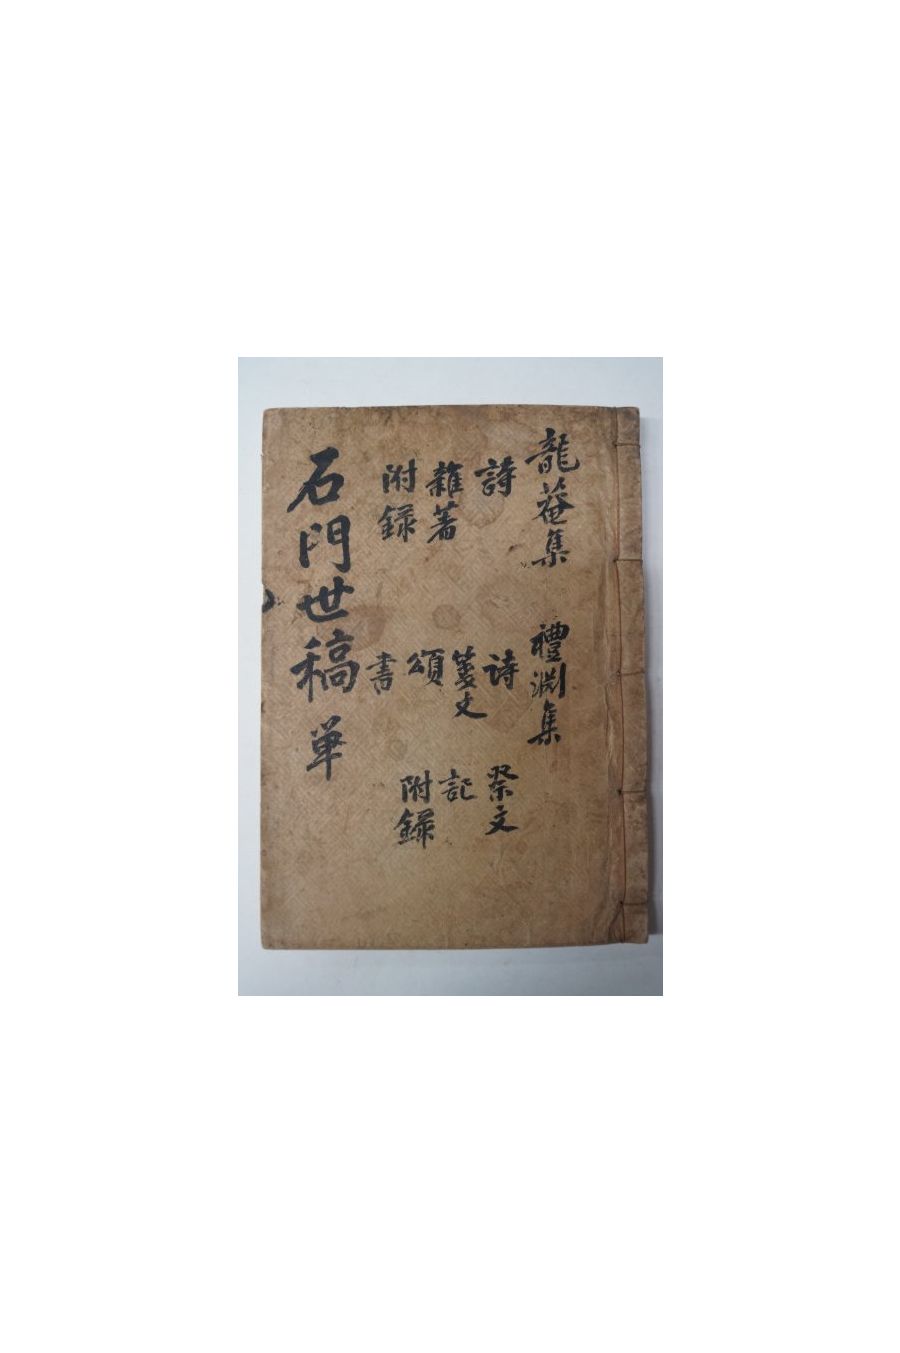 龍菴集 禮淵集
詩 詩 祭文
雜著 箋文 記
附錄 頌 附錄
書
石門世稿 单